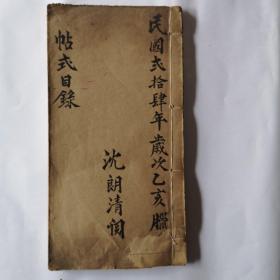 民國弍拾肆年歲次乙亥臘
沈朗清閱
帖式目錄